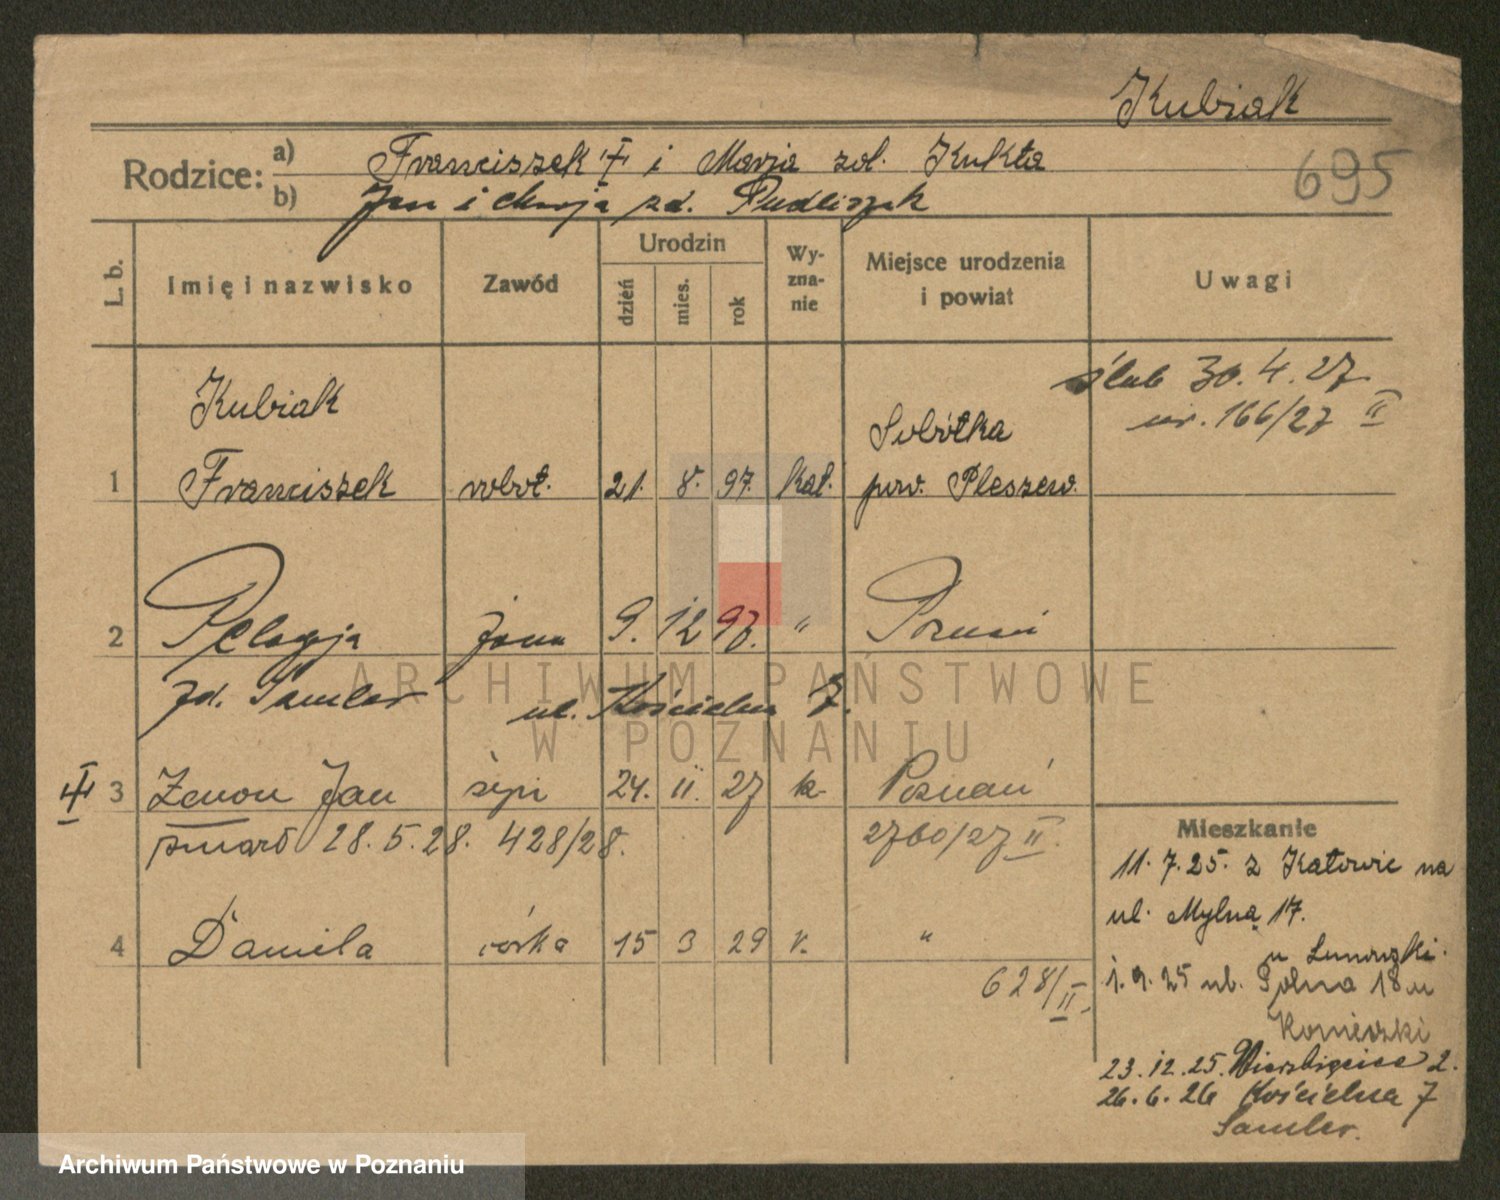 Kubiak
695
Rodzice: a) Franciszek i Marja zd. Kukła
b) Jan i Marja zd. Pudliszak
L. b. Imię i nazwisko Zawód Urodzin dzień mies. rok Wyznanie Miejsce urodzenia i powiat Uwagi
ślub 30.4.27
nr. 166/27 II
Kubiak Sobótka
1 Franciszek robot. 21. 8. 97. kat. pow. Pleszew.
2 Pelagja żona 9. 12 97. " Poznań
zd. Samler ul. Kościelna 7.
3 Zenon Jan syn 24. 11. 27 k. Poznań
zmarł 28.5.28. 428/28. 2760/27 II.
4 Daniela córka 15 3 29 r. "
628/II.
Mieszkanie
11.7.25. z Katowic na
ul. Mylną 17.
u
1.9.25 ul. Polna 18 u
Konieczki
23.12.25. Wierzbięcice 2.
26.6.26 Kościelna 7
Samler.
ARCHIWUM PAŃSTWOWE
W POZNANIU
Archiwum Państwowe w Poznaniu